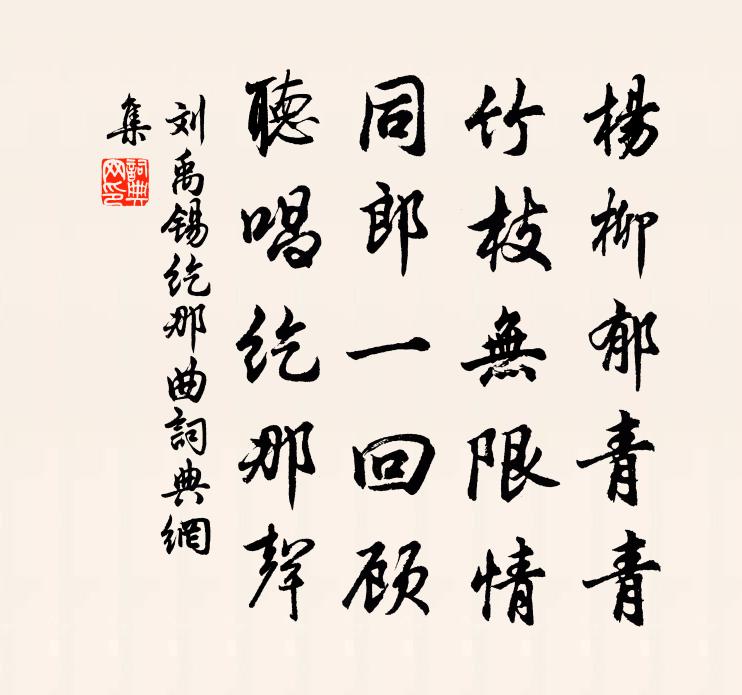 楊柳郁青青
竹枝無限情
同郎一回顾
聽唱纥那聲
刘禹锡纥那曲詞典網
集
詞典
网印